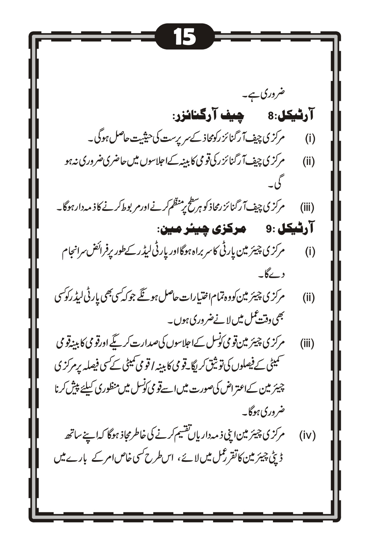 15
ضروری ہے۔
آرٹیکل:8 چیف آرگنائزر:
(i) مرکزی چیف آرگنائزر کو محاذ کے سرپرست کی حیثیت حاصل ہوگی۔
(ii) مرکزی چیف آرگنائزر کی قومی کابینہ کے اجلاسوں میں حاضری ضروری نہ ہو
گی۔
(iii) مرکزی چیف آرگنائزر محاذ کو ہر سطح پر منظم کرنے اور مربوط کرنے کا ذمہ دار ہوگا۔
آرٹیکل:9 مرکزی چیئر مین:
(i) مرکزی چیئر مین پارٹی کا سربراہ ہوگا اور پارٹی لیڈر کے طور پر فرائض سرانجام
دے گا۔
(ii) مرکزی چیئر مین کو وہ تمام اختیارات حاصل ہونگے جو کہ کسی بھی پارٹی لیڈر کو کسی
بھی وقت عمل میں لانے ضروری ہوں۔
(iii) مرکزی چیئر مین قومی کونسل کے اجلاسوں کی صدارت کریگے اور قومی کابینہ قومی
کمیٹی کے فیصلوں کی توثیق کریگا۔ قومی کابینہ / قومی کمیٹی کے کسی فیصلہ پر مرکزی
چیئر مین کے اعتراض کی صورت میں اسے قومی کونسل میں منظوری کیلئے پیش کرنا
ضروری ہوگا۔
(iv) مرکزی چیئر مین اپنی ذمہ داریاں تقسیم کرنے کی خاطر مجاز ہوگا کہ اپنے ساتھ
ڈپٹی چیئر مین کا تقرر عمل میں لائے، اس طرح کسی خاص امر کے بارے میں